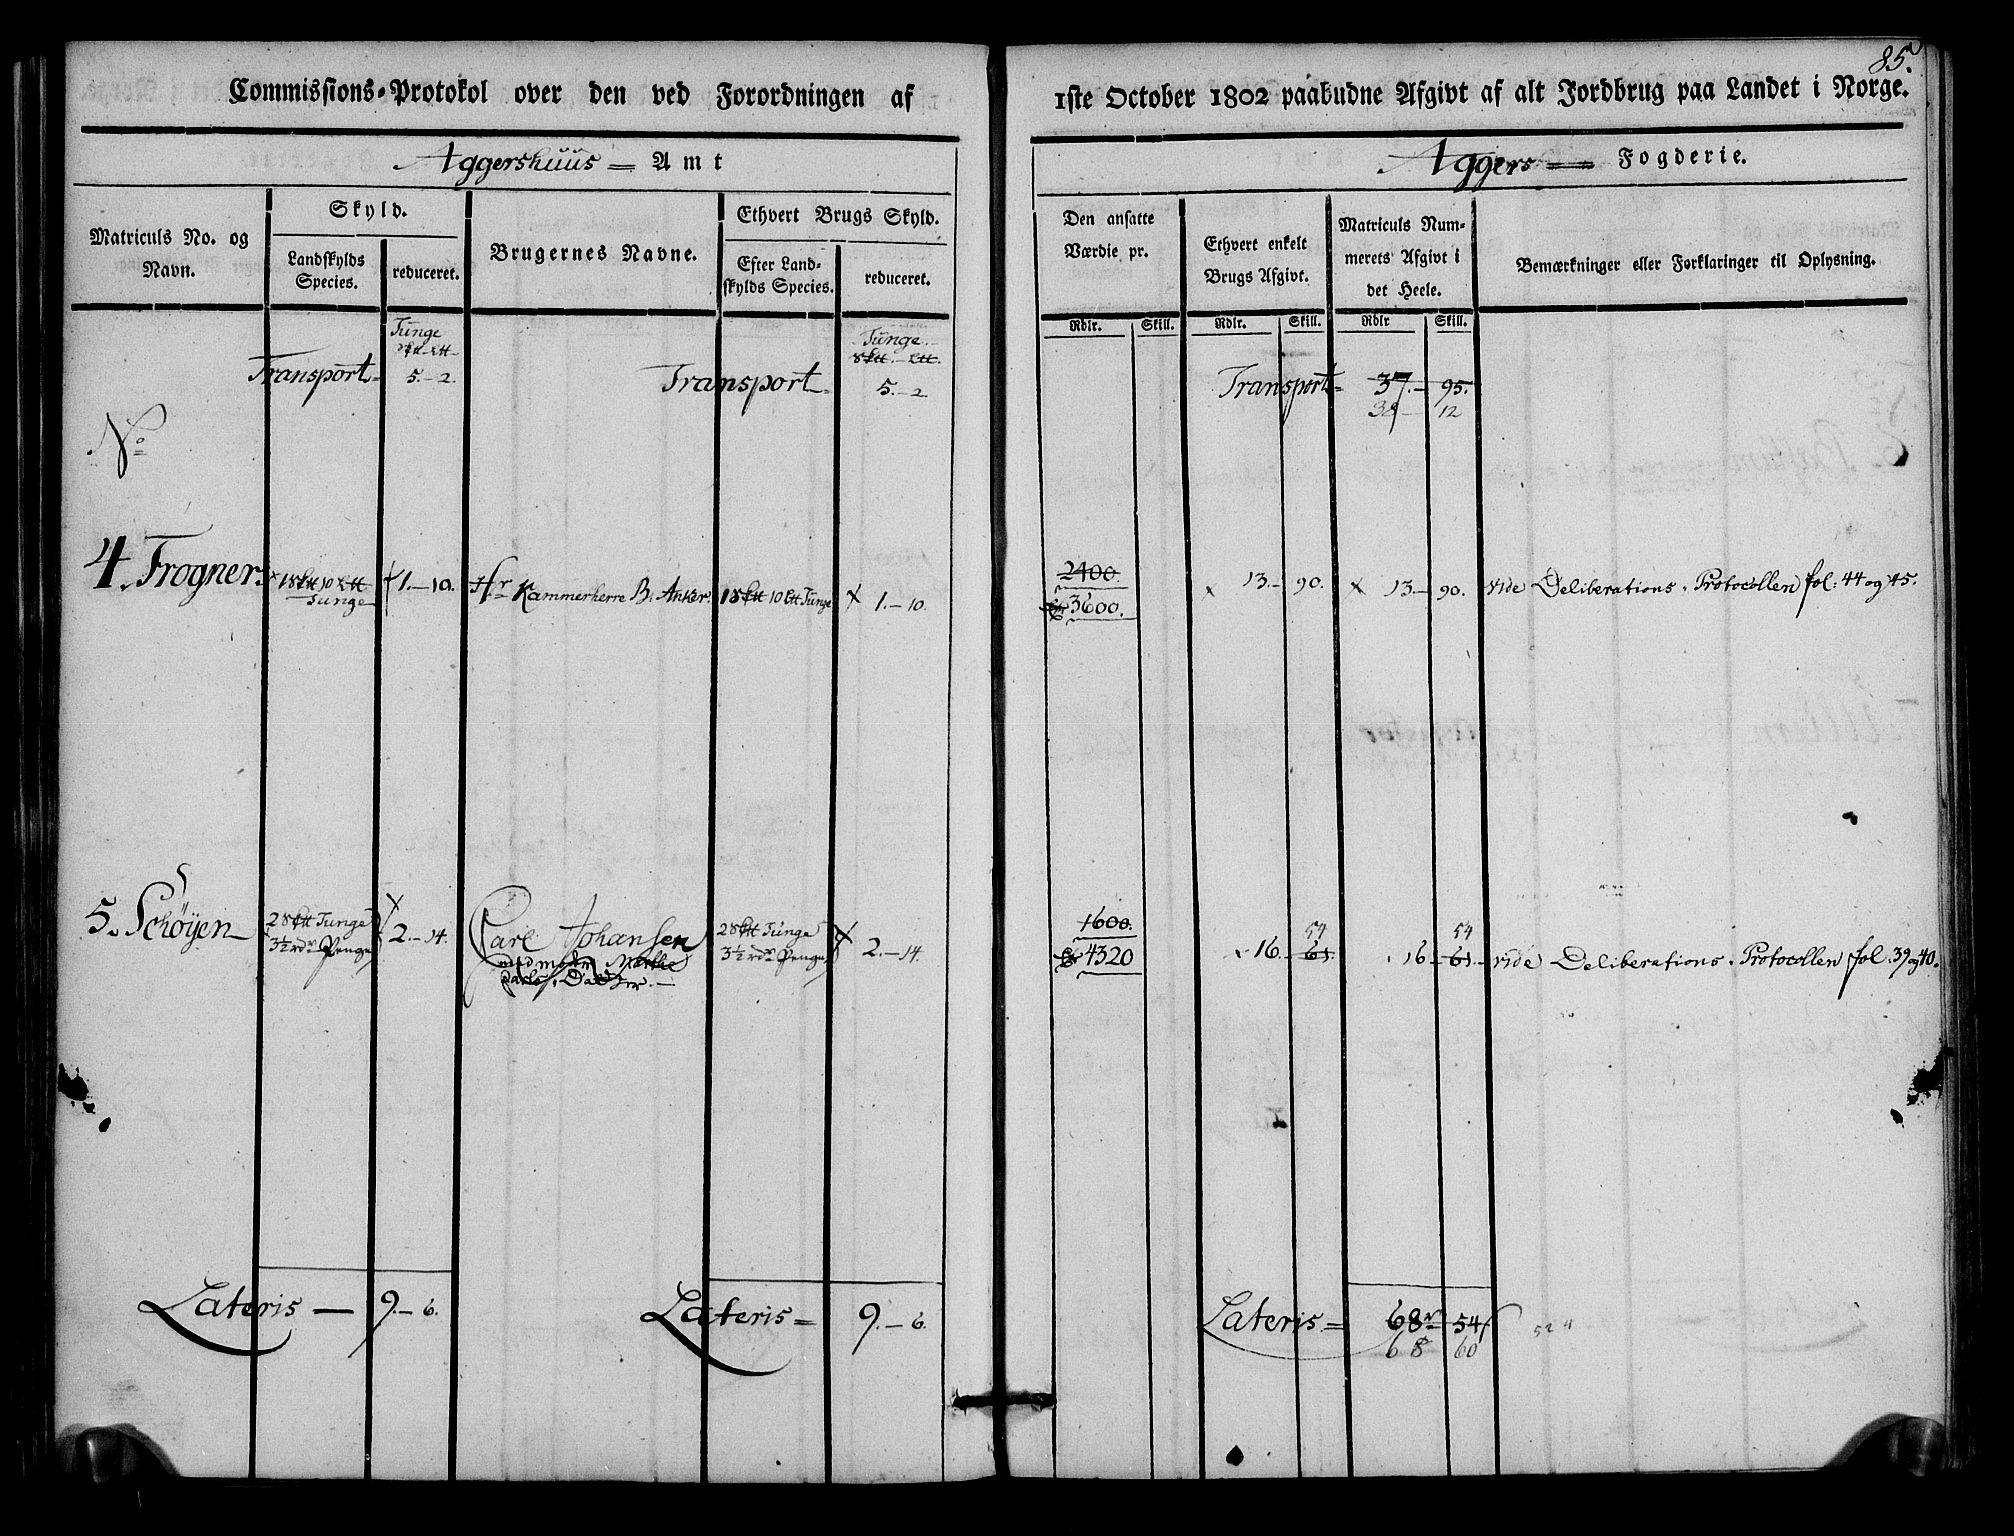 85.
Commissions-Protokol over den ved Forordningen af
1ste October 1802 paabudne Afgivt af alt Jordbrug paa Landet i Norge.
Aggershuus = Amt
Aggers = Fogderie.
Matriculs No. og Navn.
Skyld.
Landskylds Species.
reduceret.
Brugernes Navne.
Ethvert Brugs Skyld.
Efter Land-skylds Species.
reduceret.
Den ansatte Værdie pr.
Ethvert enkelt Brugs Afgivt.
Matriculs Num-merets Afgivt i det Heele.
Bemærkninger eller Forklaringer til Oplysning.
Rdlr. Skill. Rdlr. Skill. Rdlr Skill.
Tunge
Tunge
Transport = 5.-2. Transport = 5.-2. Transport = 37.- 95.
38- 12
No
2400.
4. Frogner. 1 10 Tunge 1.-10. Hr Kammerherre B: Anker. 1 10 Tunge 1.-10. 3600. 13.- 90. 13.- 90. vide Deliberations-Protocollen fol: 44 og 45.
1600. 54 54
5. Schöyen 2 Tunge 2.-14. Carl Johansen 2 Tunge 2.-14. 4320 16.- 61. 16- 61.- vide Deliberations-Protocollen fol. 39 og 40.
3½ rdr Penge 3½ rdr Penge
Lateris - 9.-6. Lateris = 9.-6. Lateris = 68 54
68 60